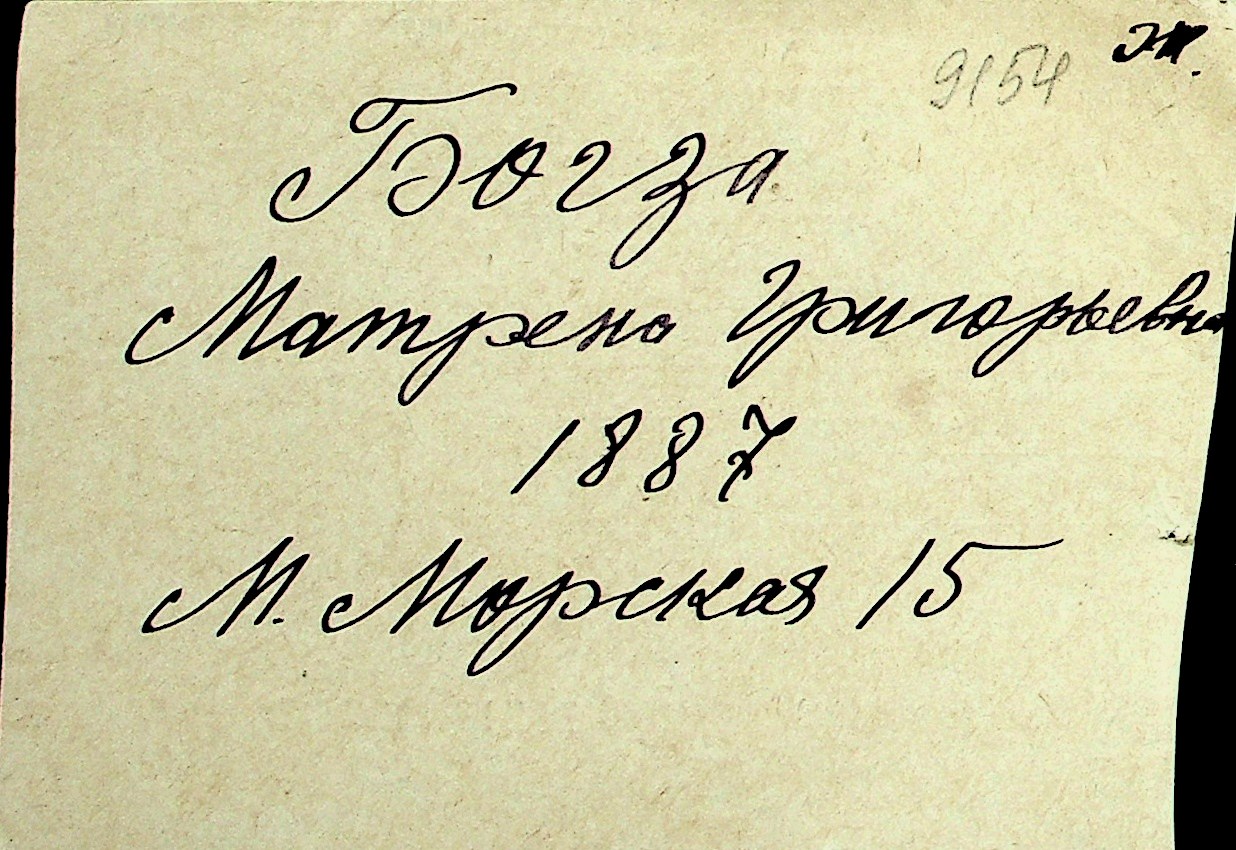 9154 Ж.
Богза
Матрена Григорьевна
1887
М. Морская 15